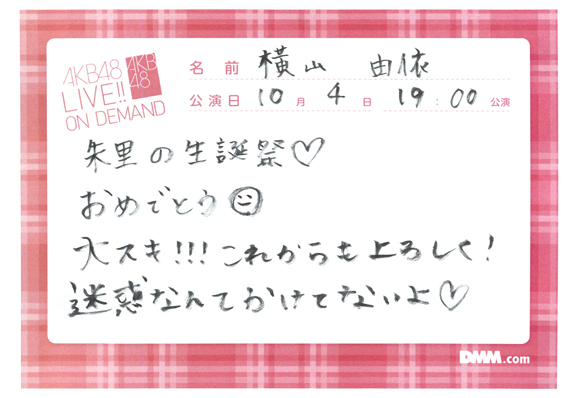 AKB48
LIVE!!
ON DEMAND
AKB
48
名前 横山 由依
公演日 10月 4日 19:00 公演
朱里の生誕祭♡
おめでとう☺
大スキ!!!これからもよろしく!
迷惑なんてかけてないよ♡
DMM.com